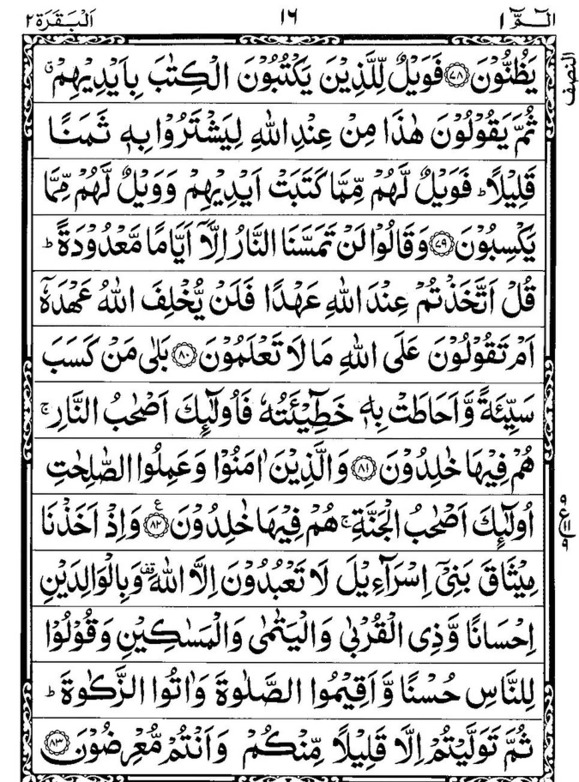 الٓـمّٓ ١ ١٦ اَلْبَقَرَة ٢
يَظُنُّوْنَ ﴿٧٨﴾ فَوَيْلٌ لِّلَّذِيْنَ يَكْتُبُوْنَ الْكِتٰبَ بِاَيْدِيْهِمْ ۗ النصف
ثُمَّ يَقُوْلُوْنَ هٰذَا مِنْ عِنْدِ اللّٰهِ لِيَشْتَرُوْا بِهٖ ثَمَنًا
قَلِيْلًا ؕ فَوَيْلٌ لَّهُمْ مِّمَّا كَتَبَتْ اَيْدِيْهِمْ وَوَيْلٌ لَّهُمْ مِّمَّا
يَكْسِبُوْنَ ﴿٧٩﴾ وَقَالُوْا لَنْ تَمَسَّنَا النَّارُ اِلَّاۤ اَيَّامًا مَّعْدُوْدَةً ؕ
قُلْ اَتَّخَذْتُمْ عِنْدَ اللّٰهِ عَهْدًا فَلَنْ يُّخْلِفَ اللّٰهُ عَهْدَهٗۤ
اَمْ تَقُوْلُوْنَ عَلَى اللّٰهِ مَا لَا تَعْلَمُوْنَ ﴿٨٠﴾ بَلٰى مَنْ كَسَبَ
سَيِّئَةً وَّاَحَاطَتْ بِهٖ خَطِيْٓئَتُهٗ فَاُولٰٓئِكَ اَصْحٰبُ النَّارِ ۚ
هُمْ فِيْهَا خٰلِدُوْنَ ﴿٨١﴾ وَالَّذِيْنَ اٰمَنُوْا وَعَمِلُوا الصّٰلِحٰتِ
اُولٰٓئِكَ اَصْحٰبُ الْجَنَّةِ ۚ هُمْ فِيْهَا خٰلِدُوْنَ ﴿٨٢﴾ ع وَاِذْ اَخَذْنَا
مِيْثَاقَ بَنِيْۤ اِسْرَآءِيْلَ لَا تَعْبُدُوْنَ اِلَّا اللّٰهَ وَبِالْوَالِدَيْنِ
اِحْسَانًا وَّذِي الْقُرْبٰى وَالْيَتٰمٰى وَالْمَسٰكِيْنِ وَقُوْلُوْا
لِلنَّاسِ حُسْنًا وَّاَقِيْمُوا الصَّلٰوةَ وَاٰتُوا الزَّكٰوةَ ؕ
ثُمَّ تَوَلَّيْتُمْ اِلَّا قَلِيْلًا مِّنْكُمْ وَاَنْتُمْ مُّعْرِضُوْنَ ﴿٨٣﴾